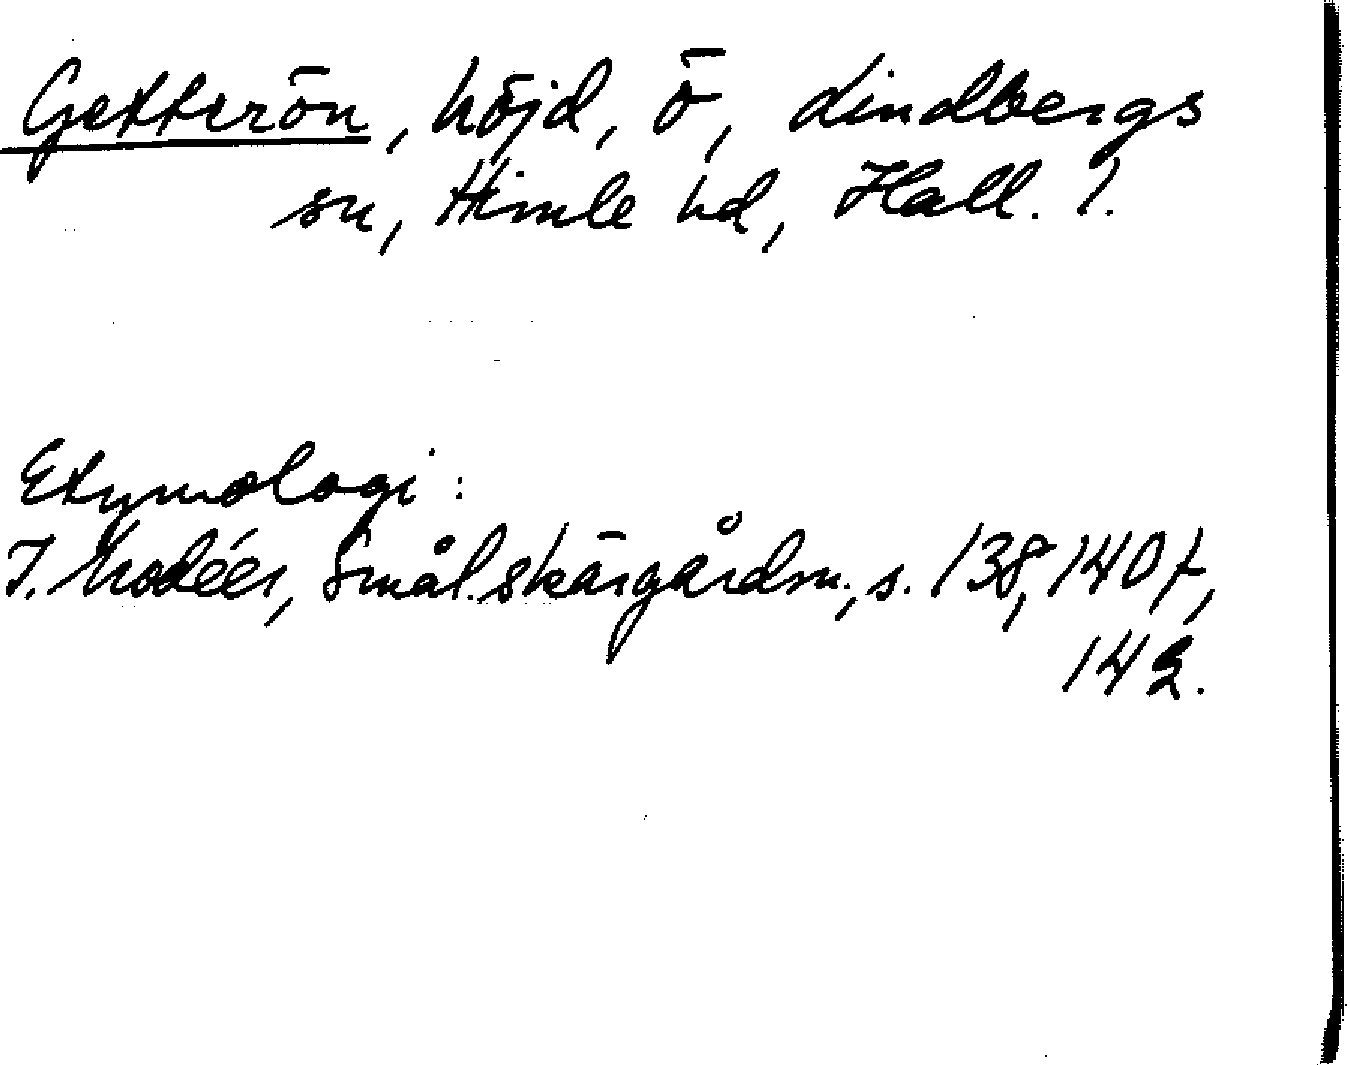 Getterön, höjd, ö, Lindbergs
sn, Himle hd, Hall. l.
Etymologi:
I. Modéer, Smål. skärgårdsn., s. 138, 140 f,
142.